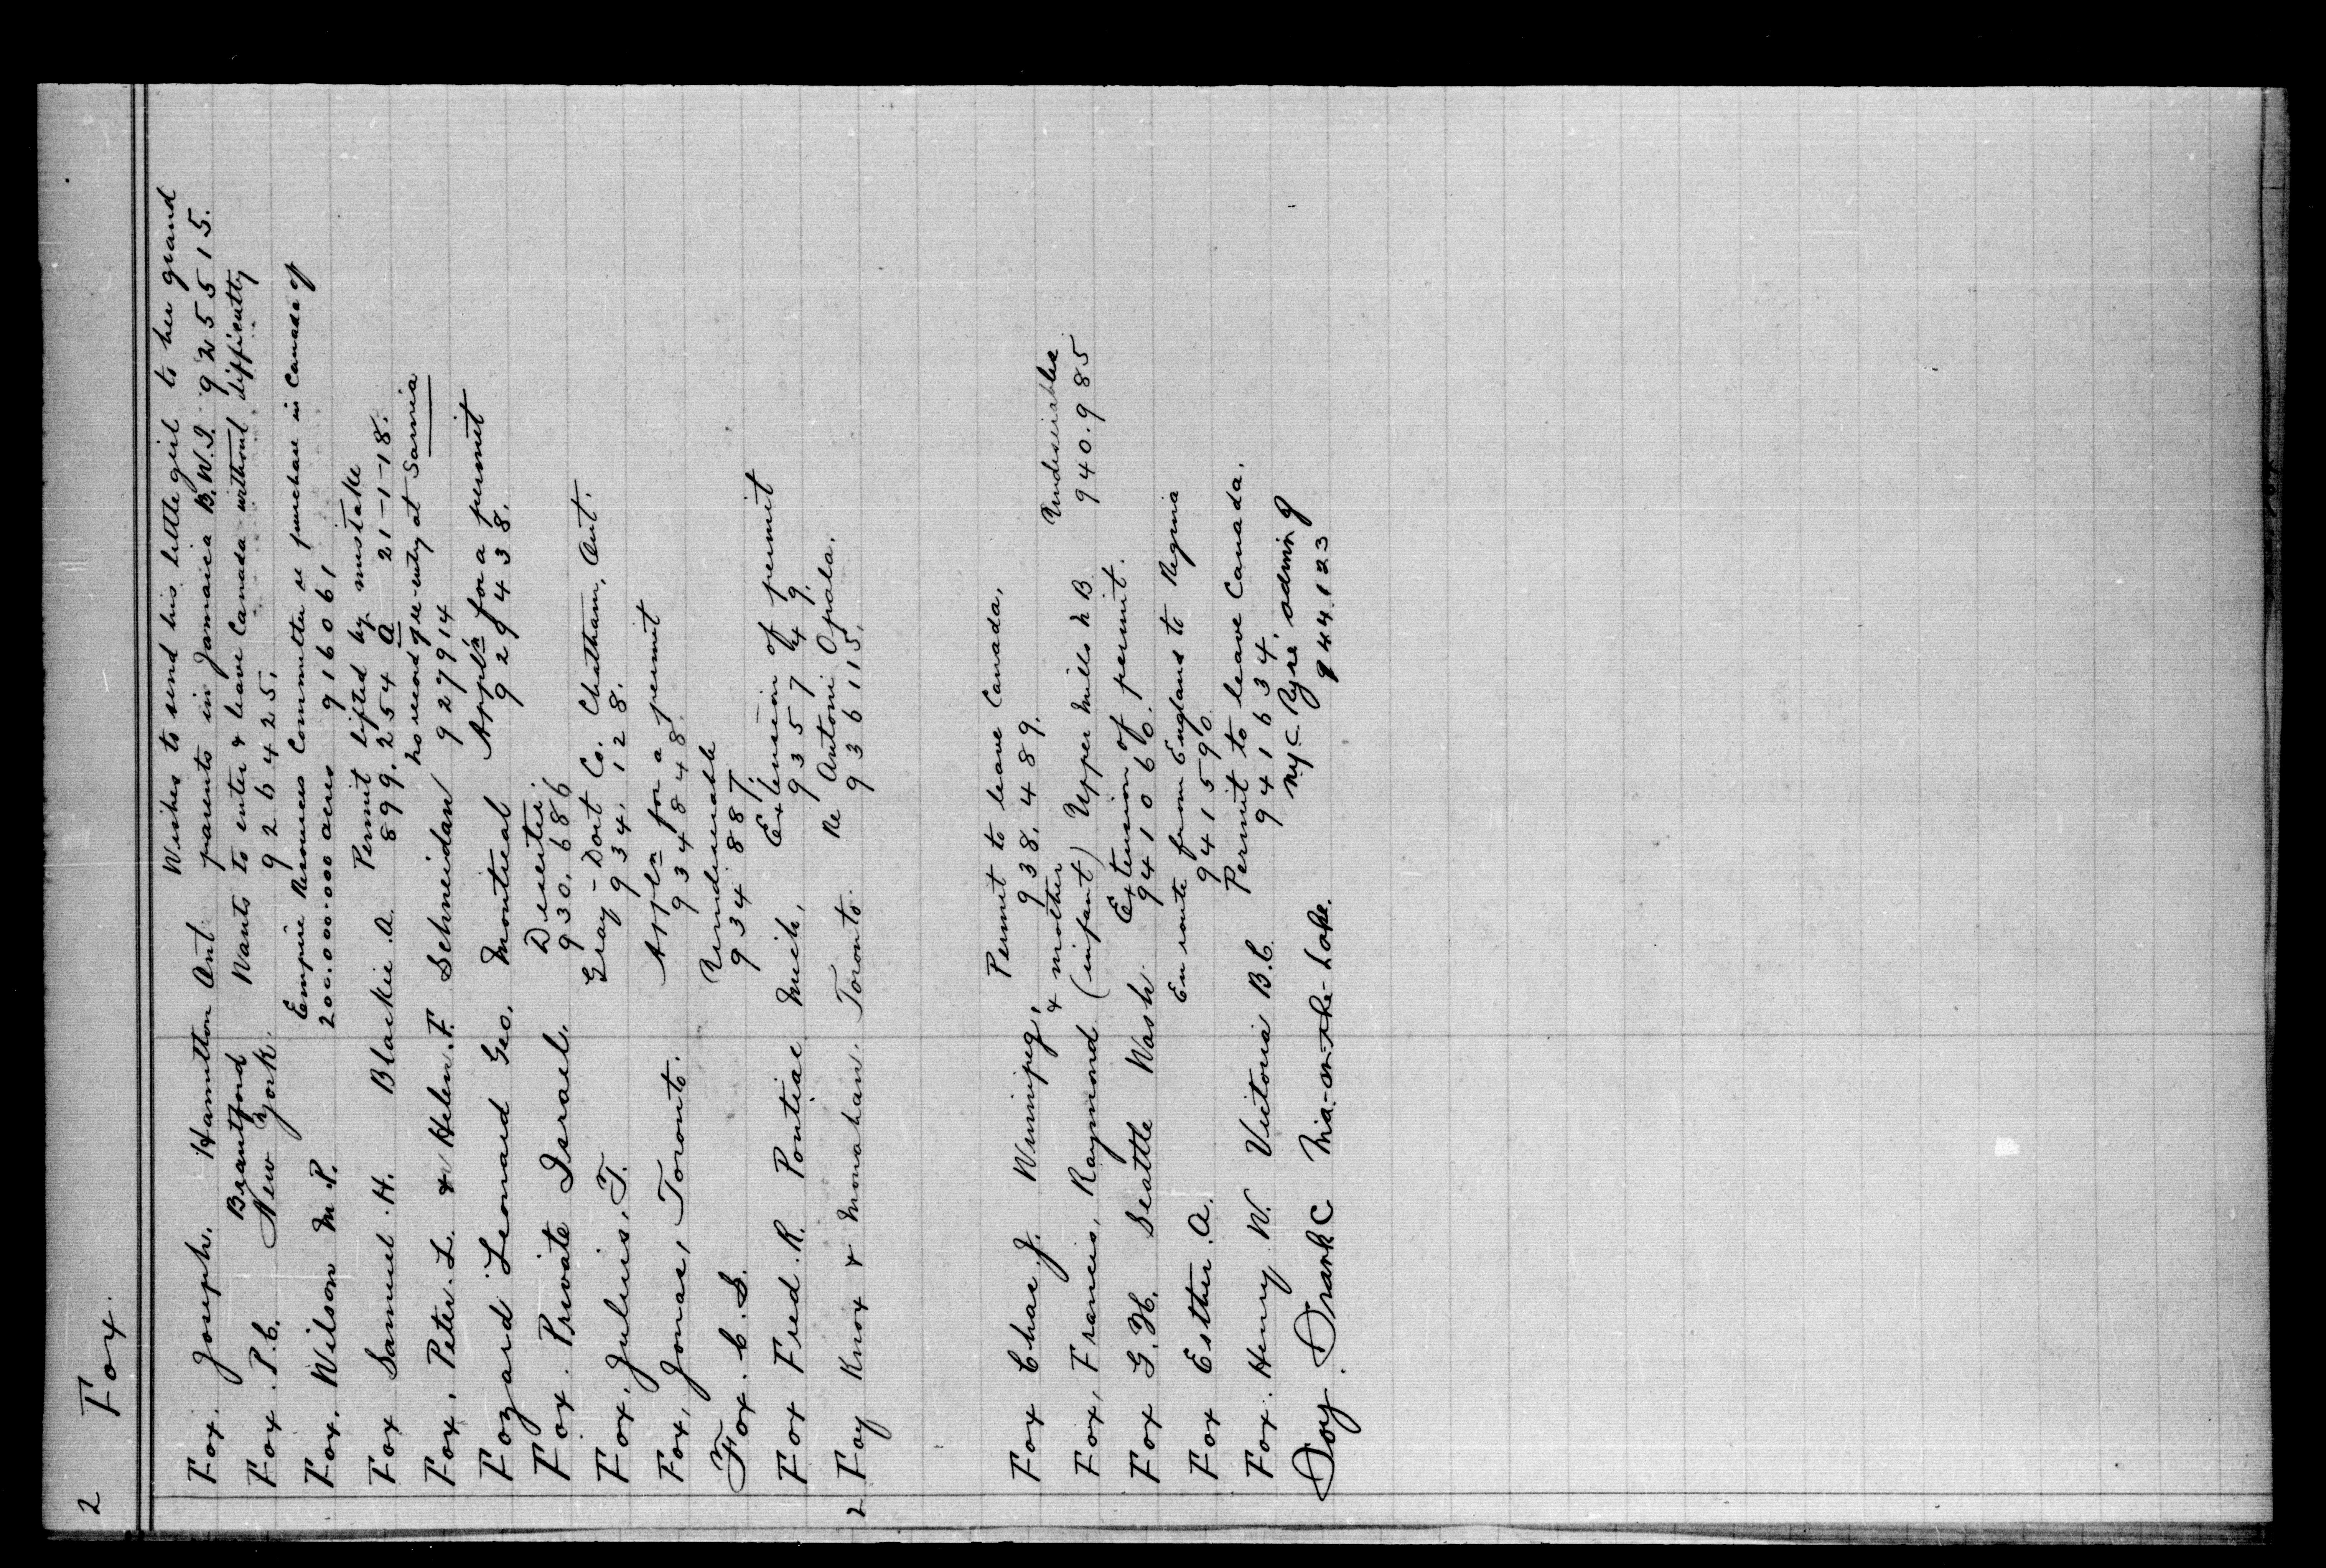 2 Fox.
Fox. Joseph. Hamilton Ont Wishes to send his little girl to her grand
Brantford parents in Jamaica B.W.I. 925515.
Fox. P.C. New York. Wants to enter & leave Canada without difficulty
926425.
Fox. Wilson M.P. Empire Resources Committee re purchase in Canada of
200.000.000 acres 916061
Fox Samuel H. Blackie. A. Permit lifted by mistake
899.254 A 21-1-18.
Fox. Peter. L. & Helen. F. Schneidan No record of re-entry at Sarnia
927914
Fozard Leonard Geo. Montreal Appl'n for a permit
929438.
Fox. Private Israel. Deserter.
930.686
Fox. Julius. T. Gray-Dort Co. Chatham, Ont.
934.128.
Fox, Jonas, Toronto. Appl'n for a permit
934848.
Fox. C. S. Undesirable
934887.
Fox Fred. R. Pontiac Mich. Extension of permit
935749.
2 Foy Knox & Monahan. Toronto. Re Antoni Opala.
936115.
Fox Chas. J. Winnipeg, Permit to leave Canada,
938.489.
& mother Undesirables
Fox, Francis, Raymond (infant) Upper Mills N B 940.985
Fox G. H. Seattle Wash. Extension of permit.
941066.
Fox Esther. A. En route from England to Regina
941590
Fox. Henry. W. Victoria B.C. Permit to leave Canada.
941634.
Foy. Frank C Nia-on-the-Lake. re admin of
944.123